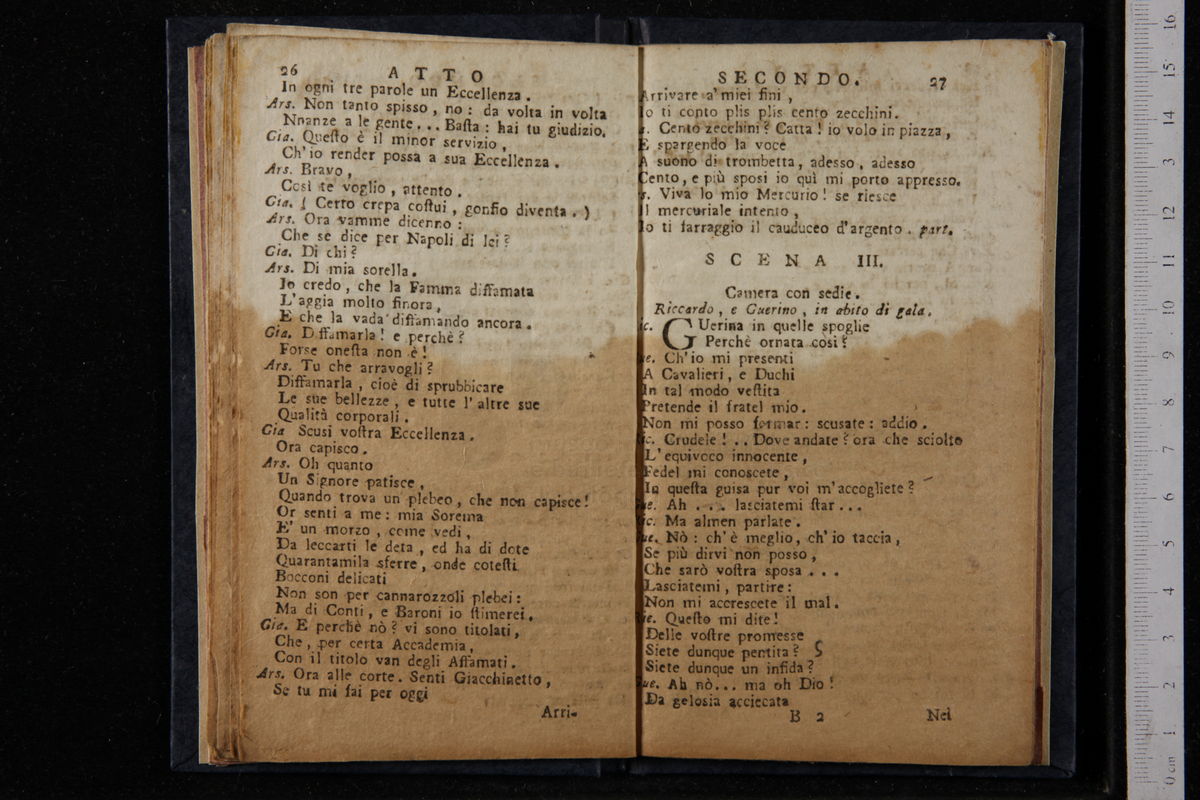 26 ATTO
In ogni tre parole un Eccellenza.
Ars. Non tanto spisso, no: da volta in volta
Nnanze a le gente... Baſta: hai tu giudizio.
Gia. Queſto è il minor servizio,
Ch'io render possa a sua Eccellenza.
Ars. Bravo,
Così te voglio, attento.
Gia. ( Certo crepa coſtui, gonfio diventa. )
Ars. Ora vamme dicenno:
Che se dice per Napoli di lei?
Gia. Di chi?
Ars. Di mia sorella.
Io credo, che la Famma diffamata
L'aggia molto finora,
E che la vada diffamando ancora.
Gia. Diffamarla! e perchè?
Forse oneſta non è!
Ars. Tu che arravogli?
Diffamarla, cioè di sprubbicare
Le sue bellezze, e tutte l'altre sue
Qualità corporali.
Gia Scusi voſtra Eccellenza.
Ora capisco.
Ars. Oh quanto
Un Signore patisce,
Quando trova un plebeo, che non capisce!
Or senti a me: mia Sorema
E' un morzo, come vedi,
Da leccarti le deta, ed ha di dote
Quarantamila sferre, onde coteſti
Bocconi delicati
Non son per cannarozzoli plebei:
Ma di Conti, e Baroni io ſtimerei.
Gia. E perchè nò? vi sono titolati,
Che, per certa Accademia,
Con il titolo van degli Affamati.
Ars. Ora alle corte. Senti Giacchinetto,
Se tu mi fai per oggi
Arri-
SECONDO. 27
Arrivare a' miei fini,
Io ti conto plis plis cento zecchini.
a. Cento zecchini? Catta! io volo in piazza,
E spargendo la voce
A suono di trombetta, adesso, adesso
Cento, e più sposi io quì mi porto appresso.
s. Viva lo mio Mercurio! se riesce
Il mercuriale intento,
Io ti farraggio il cauduceo d'argento. part.
SCENA III.
Camera con sedie.
Riccardo, e Guerino, in abito di gala.
ic. GUerina in quelle spoglie
Perchè ornata così?
ue. Ch'io mi presenti
A Cavalieri, e Duchi
In tal modo veſtita
Pretende il fratel mio.
Non mi posso fermar: scusate: addio.
ic. Crudele!.. Dove andate? ora che sciolto
L'equivoco innocente,
Fedel mi conoscete,
In queſta guisa pur voi m'accogliete?
ue. Ah ... lasciatemi ſtar...
ic. Ma almen parlate.
ue. Nò: ch'è meglio, ch'io taccia,
Se più dirvi non posso,
Che sarò voſtra sposa...
Lasciatemi, partire:
Non mi accrescete il mal.
ic. Queſto mi dite!
Delle voſtre promesse
Siete dunque pentita?
Siete dunque un infida?
ue. Ah nò... ma oh Dio!
Da gelosia acciecata
B 2 Nel